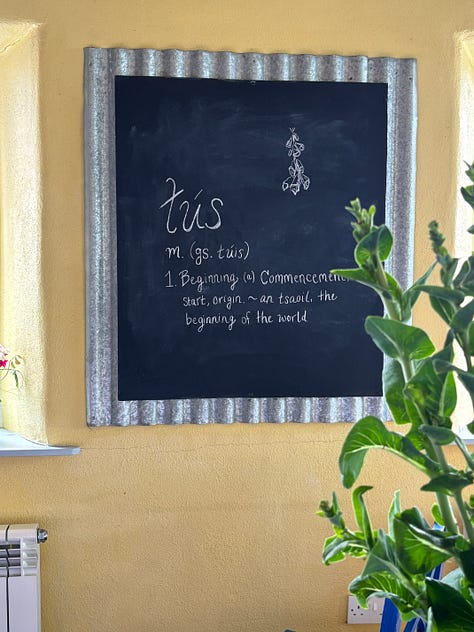 tús
m. (gs. túis)
1. Beginning, (a) Commencement,
start, origin. ~ an tsaoil, the
beginning of the world